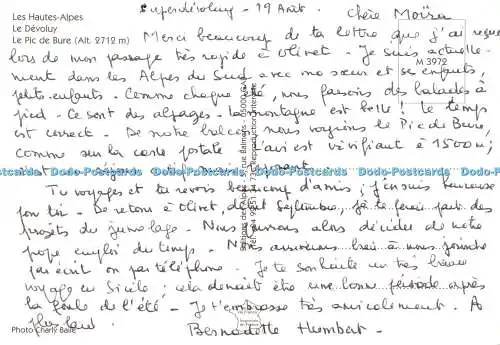 Les Hautes-Alpes
Le Dévoluy
Le Pic de Bure (Alt. 2712 m)
Superdévoluy - 19 Août.
Chère Moïra
Merci beaucoup de ta lettre que j'ai reçue
lors de mon passage très rapide à Olivet. Je suis actuelle-
ment dans les Alpes du Sud avec ma sœur et ses enfants,
M 3972
petits-enfants. Comme chaque été, nous faisons des balades à
pied. Ce sont des alpages. La montagne est belle ! le temps
est correct. De notre balcon nous voyons le Pic de Bure,
comme sur la carte postale. L'air est vivifiant à 1500 m ;
Dodo-Postcards Dodo-Postcards Dodo-Postcards Dodo-Postcards
Tu voyages et tu revois beaucoup d'amis ; j'en suis heureuse
pour toi. De retour à Olivet, début Septembre, je te ferai part des
projets du jumelage. Nous pourrons alors décider de notre
propre emploi du temps. Nous arriverons bien à nous joindre
par écrit ou par téléphone. Je te souhaite un très beau
voyage en Sicile ; cela devrait être une bonne période après
la foule de l'été. Je t'embrasse très amicalement. A
plus tard.
Bernadette Humbert.
Photo Charly Baile